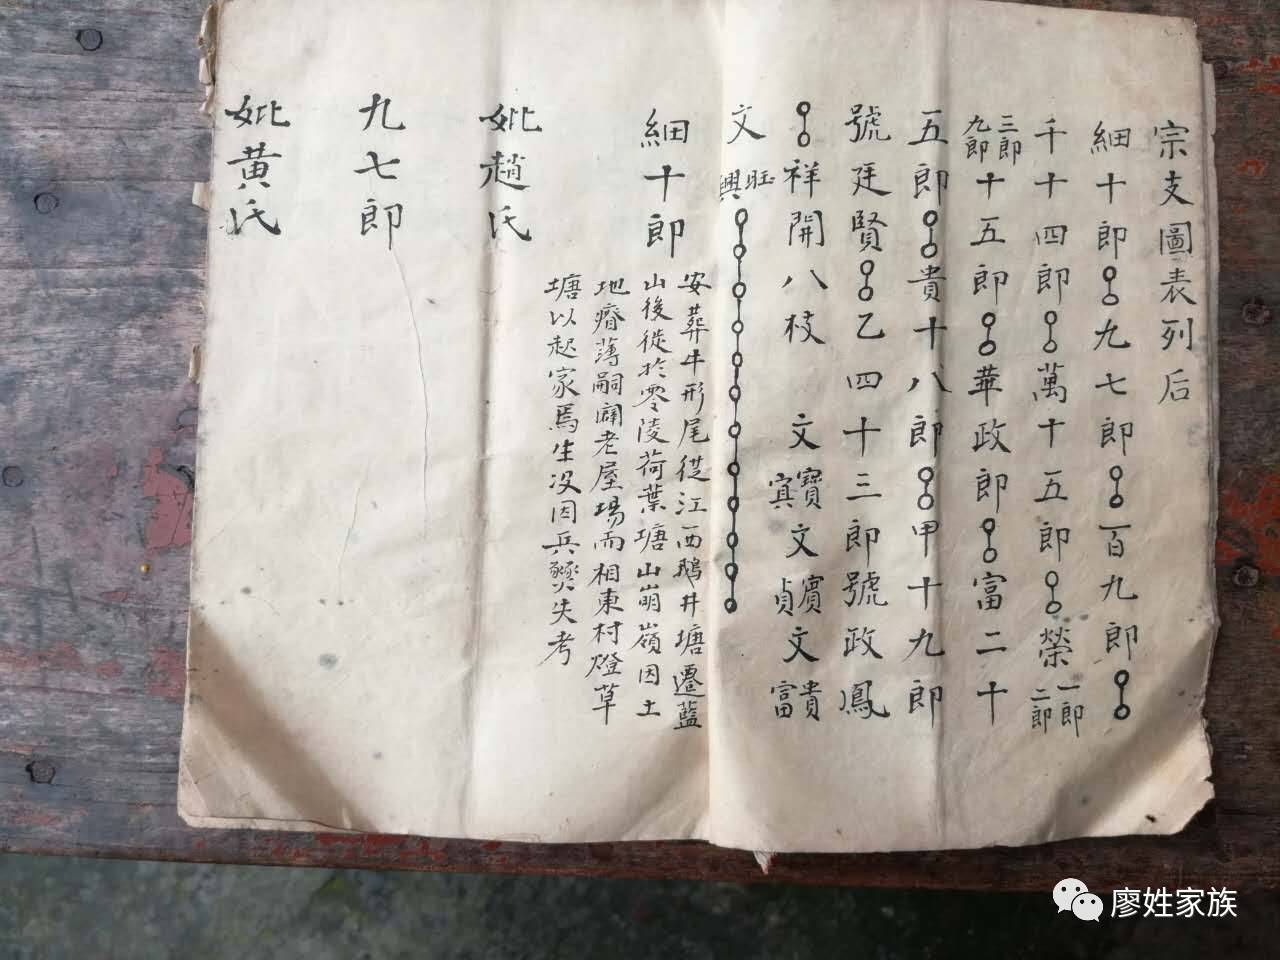 宗支圖表列后
細十郎 九七郎 百九郎
千十四郎 萬十五郎 榮一郎二郎
三郎九郎十五郎 華政郎 富二十
五郎 貴十八郎 甲十九郎
號廷賢 乙四十三郎號政鳳
祥開八枝 文寶寘文賓貞文貴富
文旺興
細十郎
安葬牛形尾從江西鵝井塘遷藍
山後從於零陵荷葉塘山崩嶺因土
地瘠薄嗣闢老屋場而相東村燈草
塘以起家焉生没因兵燹失考
妣趙氏
九七郎
妣黃氏
廖姓家族